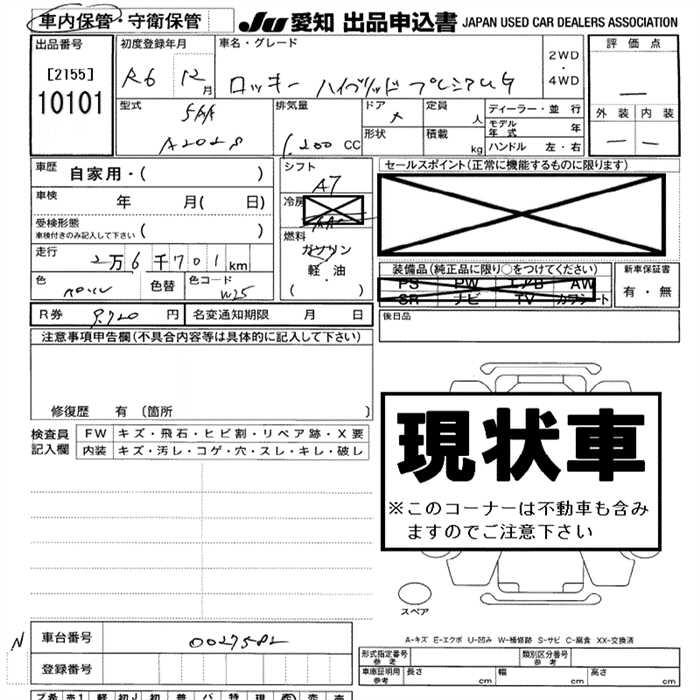 車内保管・守衛保管
JU 愛知 出品申込書 JAPAN USED CAR DEALERS ASSOCIATION
出品番号 初度登録年月 車名・グレード 評価点
[2155] R6 12月 ロッキー ハイブリッド プレミアムG 2WD・4WD
10101
型式 5AA 排気量 ドア 定員 人 ディーラー・並行 外装 内装
A202S 1.200 CC 形状 積載 kg モデル年式 年
ハンドル 左・右
車歴 自家用・( ) シフト セールスポイント(正常に機能するものに限ります)
A7
車検 年 月( 日) 冷房
AAC
受検形態 ( )
車検付きのみ記入して下さい 燃料
走行 2万6千701km ガソリン
軽・油
( ・ )
装備品(純正品に限り○をつけてください) 新車保証書
PS PW エアB AW 有・無
SR ナビ TV カワシート
色 色替 色コード W25
R券 9,720円 名変通知期限 月 日 後日品
注意事項申告欄(不具合内容等は具体的に記入して下さい)
修復歴 有 〔箇所 〕
現状車
※このコーナーは不動車も含み
ますのでご注意下さい
検査員 FW キズ・飛石・ヒビ割・リペア跡・X要
記入欄 内装 キズ・汚レ・コゲ・穴・スレ・キレ・破レ
スペア
N 車台番号 0027582
登録番号
A-キズ E-エクボ U-凹み W-補修跡 S-サビ C-腐食 XX-交換済
形式指定番号 参考 類別区分番号 参考
車庫証明用 参考 長さ cm 幅 cm 高さ cm